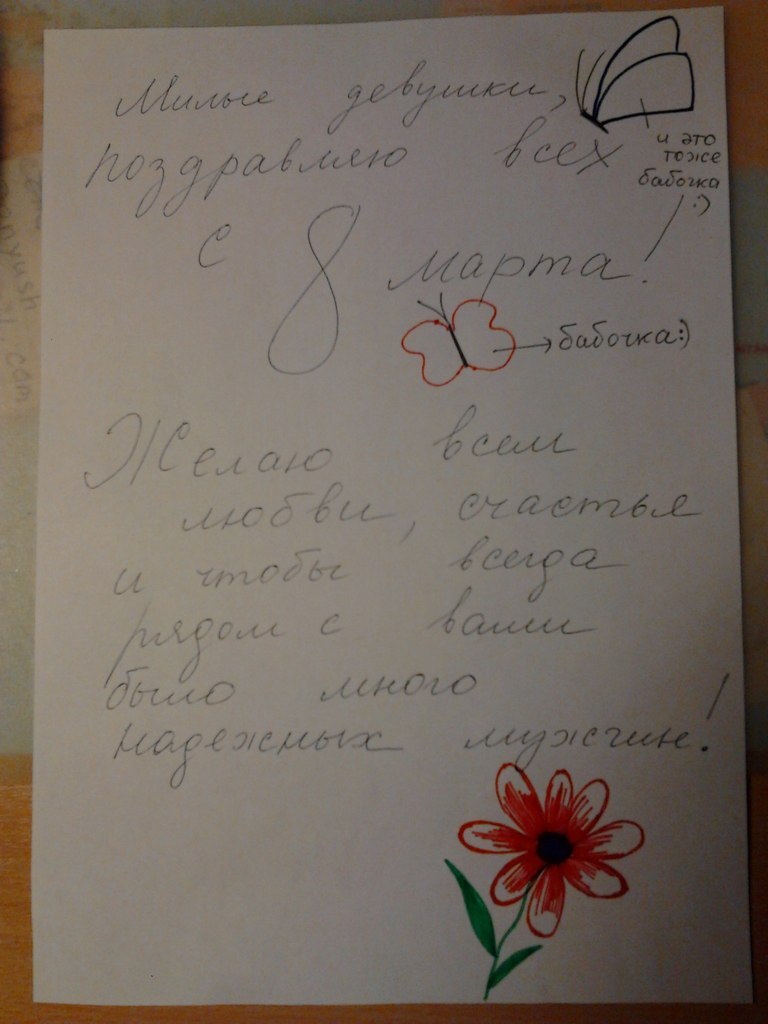 Милые девушки,
поздравляю всех
и это
тоже
бабочка
:)
с 8 марта!
бабочка:)
Желаю всем
любви, счастья
и чтобы всегда
рядом с вами
было много
надежных мужчин!